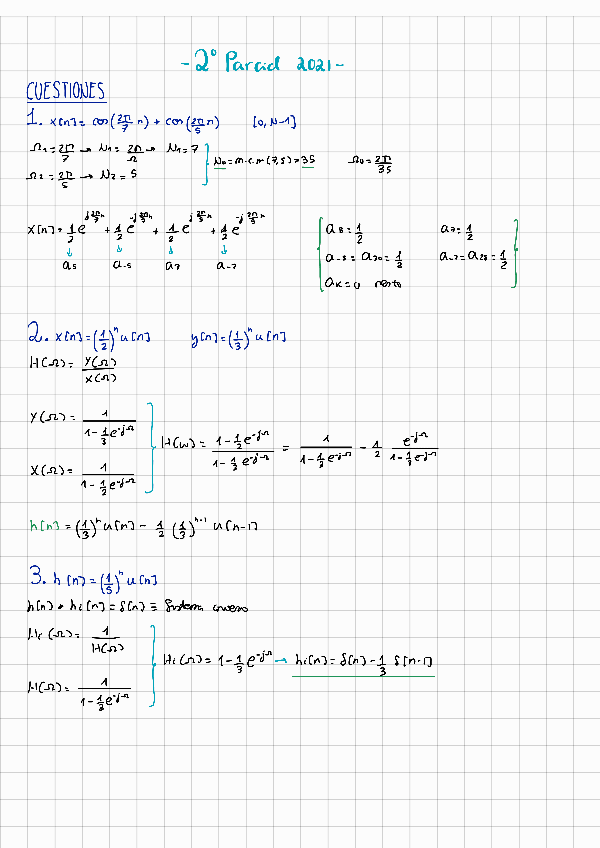 - 2º Parcial 2021 -
CUESTIONES
1. x[n] = cos(2π/7 n) + cos(2π/5 n) [0, N-1]
Ω₁ = 2π/7 → N₁ = 2π/Ω → N₁ = 7
N₀ = m.c.m (7,5) = 35 Ω₀ = 2π/35
Ω₂ = 2π/5 → N₂ = 5
x[n] = 1/2 e^(j 2π/7 n) + 1/2 e^(-j 2π/7 n) + 1/2 e^(j 2π/5 n) + 1/2 e^(-j 2π/5 n)
a₅ a₋₅ a₇ a₋₇
a₅ = 1/2 a₇ = 1/2
a₋₅ = a₃₀ = 1/2 a₋₇ = a₂₈ = 1/2
aₖ = 0 resto
2. x[n] = (1/2)^n u[n] y[n] = (1/3)^n u[n]
H(Ω) = Y(Ω)/X(Ω)
Y(Ω) = 1/(1 - 1/3 e^-jΩ)
H(ω) = (1 - 1/2 e^-jΩ)/(1 - 1/3 e^-jΩ) = 1/(1 - 1/3 e^-jΩ) - 1/2 e^-jΩ/(1 - 1/3 e^-jΩ)
X(Ω) = 1/(1 - 1/2 e^-jΩ)
h[n] = (1/3)^n u[n] - 1/2 (1/3)^(n-1) u[n-1]
3. h[n] = (1/3)^n u[n]
h[n] * hi[n] = δ[n] ≡ Sistema inverso
Hi(Ω) = 1/H(Ω)
Hi(Ω) = 1 - 1/3 e^-jΩ → hi[n] = δ[n] - 1/3 δ[n-1]
H(Ω) = 1/(1 - 1/3 e^-jΩ)